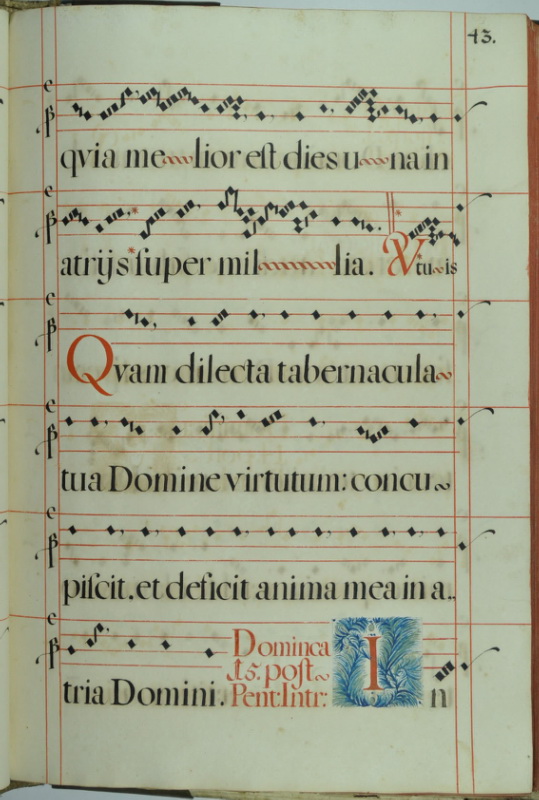 43.
qvia me lior eſt dies u na in
atrijs*ſuper mil lia. * V. tu is
Qvam dilecta tabernacula
tua Domine virtutum: concu
piſcit. et deficit anima mea in a..
tria Domini. Dominca
15. poſt
Pent: Intr: I n